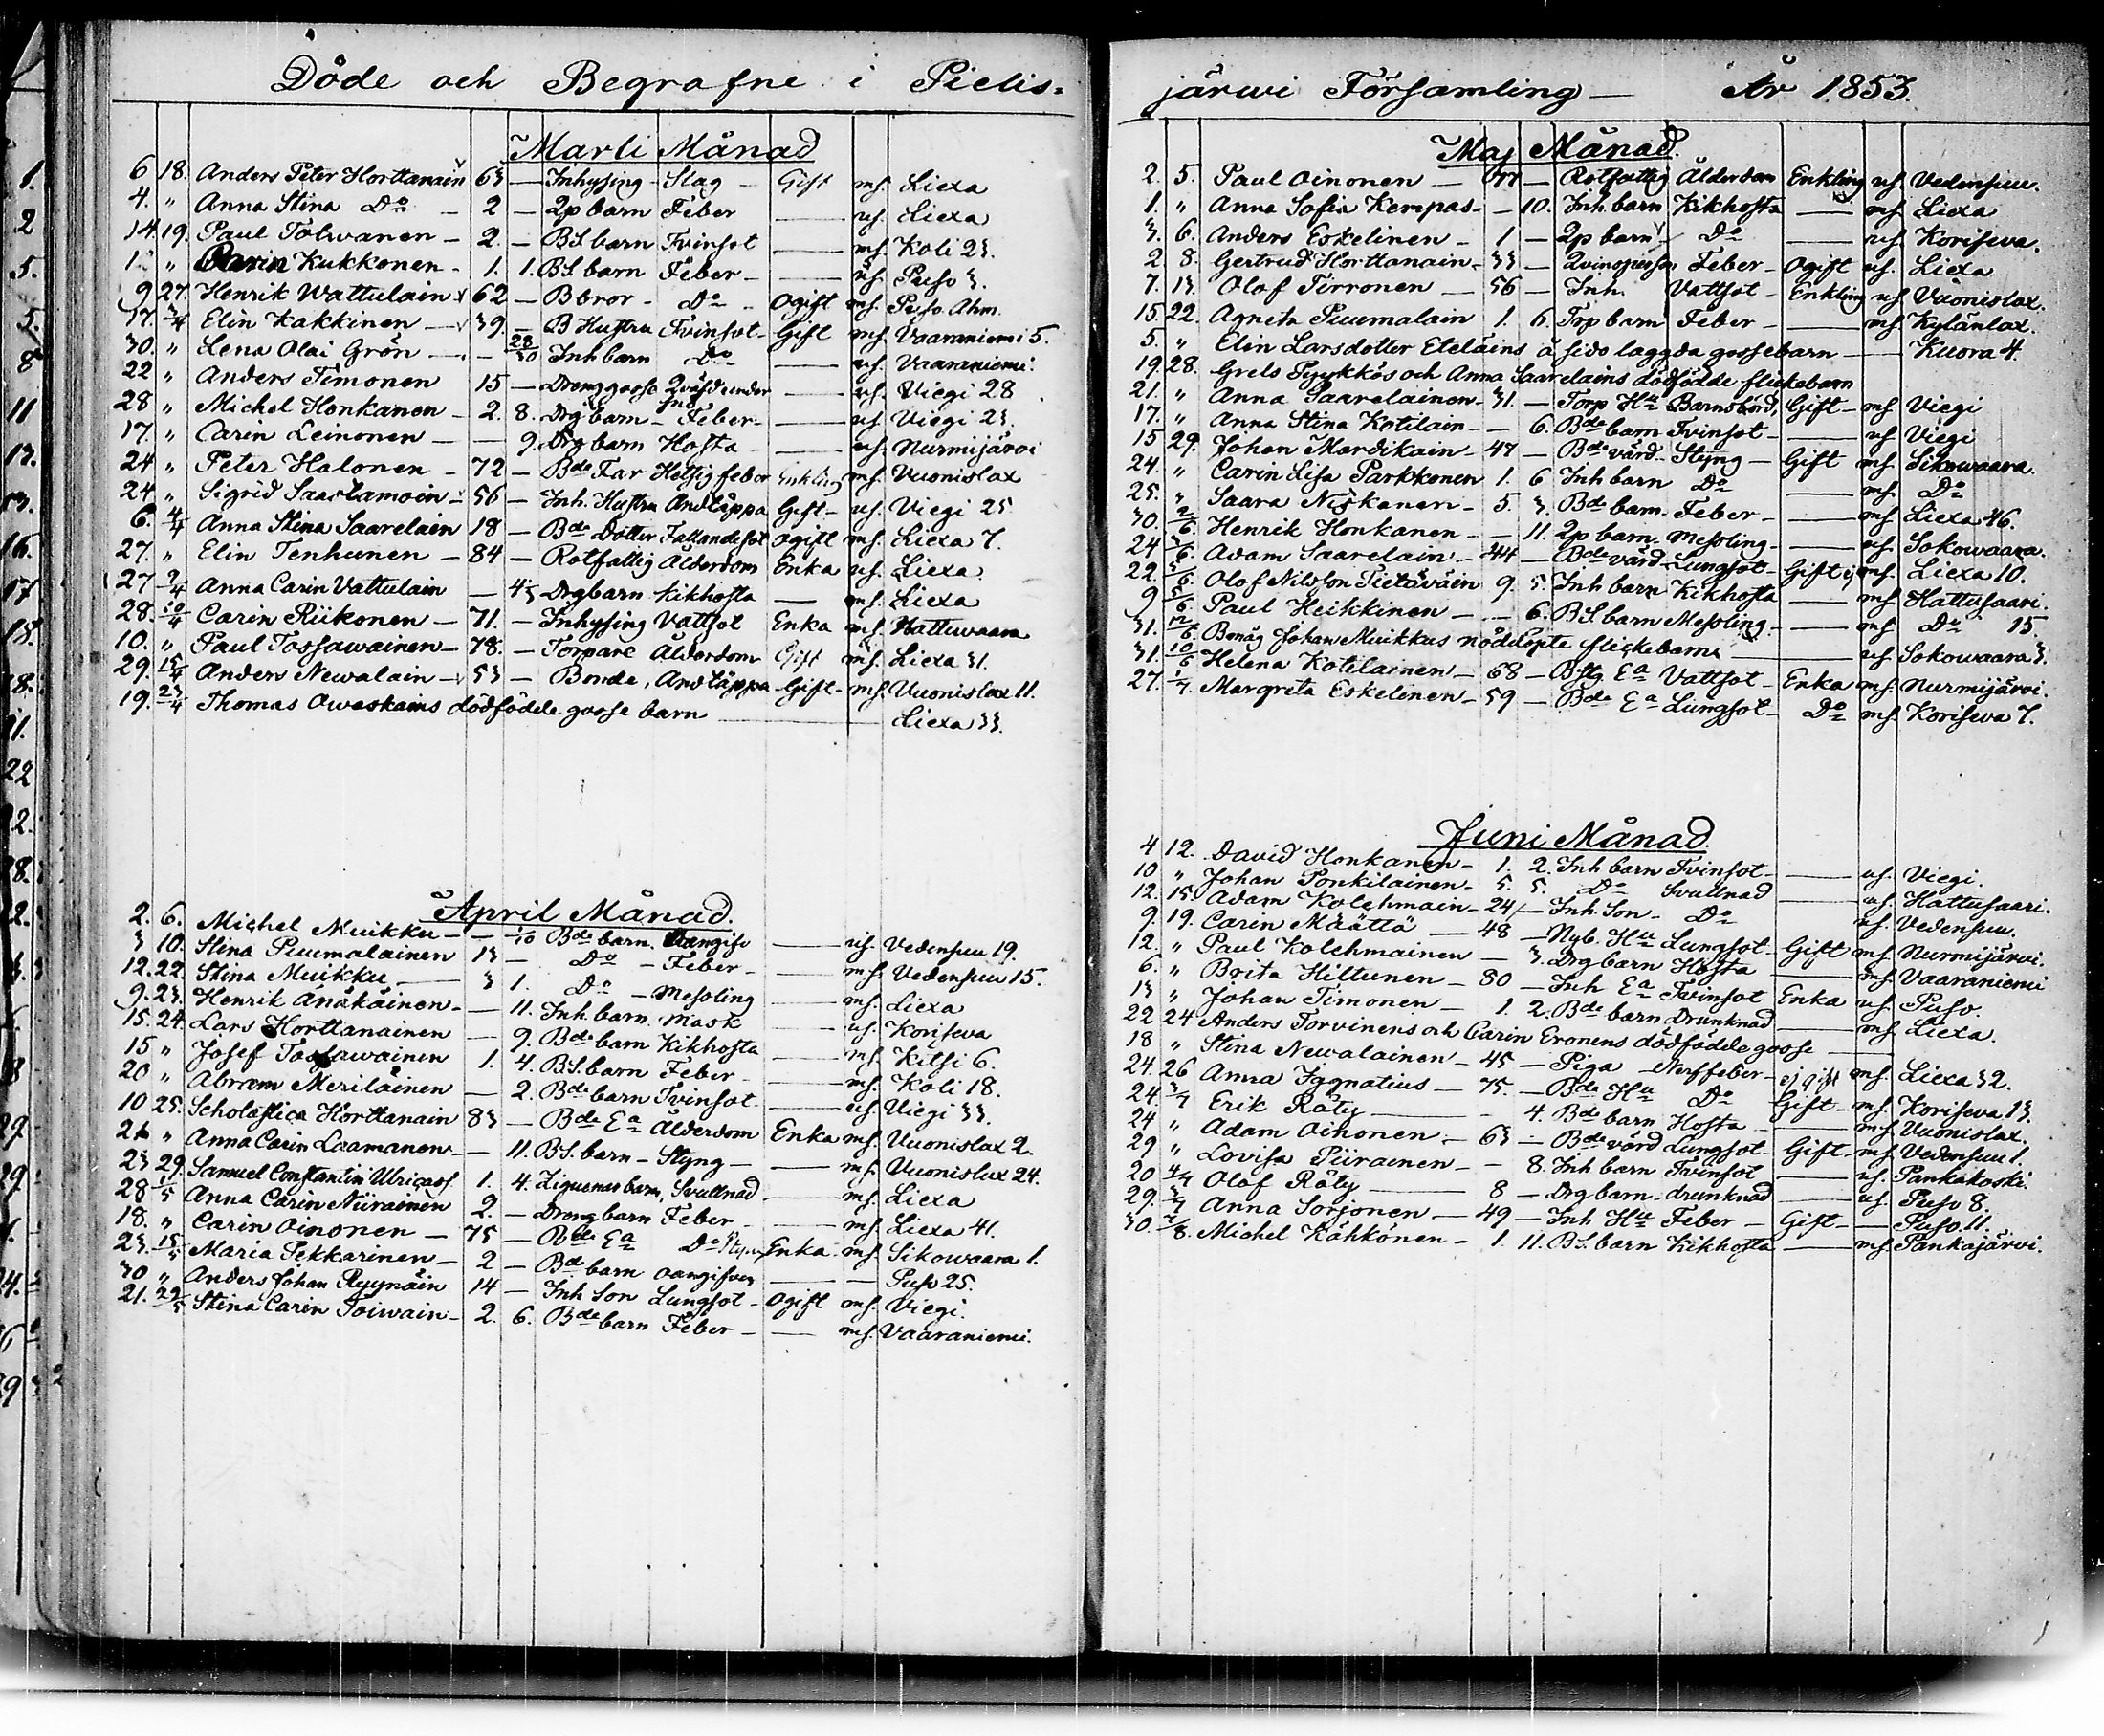 Döde och Begrafne i Pielis=
Marti Månad
6 18. Anders Peter Horttanain 63 — Inhysing - Slag - Gift ms. Liexa
4. " Anna Stina Do - 2 - 2p barn Feber — us. Liexa
14. 19. Paul Tolwanen - 2. - BS. barn Tvinsot — ms. Koli 23.
" Carin Kukkonen - 1. 1. BS. barn Feber - — us. Puso 3.
9 27. Henrik Wattulain 62 - Bbror - Do - ogift ms.
17. 3/4 Elin Kakkinen — 39. - B Hustru Tvinsot - Gift ms. Vaaraniemi 5.
30. " Lena Olai Grön — - 28/30 Inh barn Do — us. Vaaraniemi.
22 " Anders Timonen 15 — Dreng gosse — us. Viegi 28
28 " Michel Honkanen - 2. 8. Drg barn - Feber - — us. Viegi 23.
17. " Carin Leinonen — — 9. Drg barn Hosta — us. Nurmijärvi
24 " Peter Halonen - 72 - Bde Far Hetsig feber Enkling ms. Vuonislax
24 " Sigrid Saastamoin - 56 - Inh. Hustru Andtäppa Gift - us. Viegi 25
6. 4/4 Anna Stina Saarelain 18 - Bde Dotter Fallandesot ogift ms. Liexa 7.
27. " Elin Tenhunen - 84 - Rotfattig Ålderdom Enka us. Liexa.
27 Anna Carin Vattulain — Drg barn Kikhosta — ms. Liexa
28. 10/4 Carin Riikonen - 71. - Inhysing Vattsot Enka us. Hattuwaara
10. " Paul Tossawainen - 78. - Torpare Ålderdom Gift ms. Liexa 31.
29. 15/4 Anders Newalain - 53 - Bonde, Andtäppa - Gift - ms. Vuonislax 11.
19. 23/4 Thomas Oweskains dödfödde gosse barn — Liexa 33.
April Månad.
2. 6. Michel Muikku - — 1/10 Bde barn. Oangifv — us. Vedensuu 19.
3 10. Stina Puumalainen 13 - Do - Feber - — ms. Vedensuu 15.
12. 22. Stina Muikku — 3 1. Do - Messling — ms. Liexa
9. 23. Henrik Änäkäinen - — 11. Inh. barn. Mask — us. Koriseva
15. 24. Lars Horttanainen — 9. Bde barn Kikhosta — ms. Kitsi 6.
15 " Josef Tossawainen 1. 4. BS. barn Feber - — ms. Koli 18.
20 " Abram Meriläinen — 2. Bde barn Tvinsot — us. Viegi 33.
10 25. Scholastica Horttanain 83 - Bde Ea Ålderdom Enka ms. Vuonislax 2.
21 " Anna Carin Laamanen — 11. BS. barn - Styng — ms. Vuonislax 24.
23 29. Samuel Constantin 1. 4. Ziguenar barn, Svullnad — ms. Liexa
28 1/5 Anna Carin Niirainen 2. - Dreng barn Feber — ms. Liexa 41.
18. " Carin Oinonen - 75 - Bde Ea Do Enka ms. Sikowaara 1.
23. 15/5 Maria Pekkarinen - 2 - Bde barn oangifven — Puso 25.
30 " Anders Johan Ryynäin 14 - Inh Son Lungsot - ogift ms. Viegi.
21. 22/5 Stina Carin Toiwain - 2. 6. Bde barn Feber — ms. Vaaraniemi.
järwi Församling — År 1853.
Maj Månad.
2. 5. Paul Oinonen — 77 - Rotfattig Ålderdom Enkling us. Vedensuu.
1. " Anna Sofia Kempas - - 10. Inh. barn Kikhosta — ms. Liexa
3. 6. Anders Eskelinen - 1 - 2p barn Do — us. Koriseva.
2 8. Gertrud Horttanain - 33 - Qvinsperson Feber - Ogift us. Liexa
7. 13. Olof Tirronen — 56 - Inh. Vattsot - Enkling us. Vuonislax.
15. 22. Agneta Puumalain 1. 6. Torp barn Feber — ms. Kylänlax.
5. " Elin Larsdotter Eteläins å sido laggda gossebarn — Kuora 4.
19. 28. Grels Pyykkös och Anna Saarelains dödfödde flickebarn
21. " Anna Saarelainen - 31. - Torp Hu Barnsbörd, Gift - ms Viegi
17. " Anna Stina Kotilain - — 6. Bde barn Tvinsot — us Viegi
15 29. Johan Mardikain - 47 - Bde värd - Styng — Gift ms Sikowaara.
24. " Carin Lisa Parkkonen 1. 6 Inh barn Do — ms. Do
25. " Saara Niskanen - 5. 3. Bde barn. Feber - — ms Liexa 46.
30. 2/6 Henrik Honkanen - — 11. 2p barn. Messling - — us. Sokowaara.
24 3/6. Adam Saarelain - 44 - Bde värd Lungsot - Gift ms. Liexa 10.
22. 5/6 Olof Nilsson Pietäväin 9. 5. Inh barn Kikhosta — ms Hattusaari.
9 5/6. Paul Heikkinen — 6. BS. barn Messling. — ms Do 15.
31. 12/6. Johan Muikkus nöddöpte flickebarn — us. Sokowaara 3.
31. 10/6 Helena Kotilainen - 68 - Ea Vattsot - Enka ms. Nurmijärvi.
27. 1/7. Margreta Eskelinen - 59 - Bde Ea Lungsot - Do ms. Koriseva 7.
Juni Månad.
4 12. David Honkanen - 1. 2. Inh barn Tvinsot - — us. Viegi.
10 " Johan Ponkilainen - 5. 5. Do Svullnad — us. Hattusaari.
12. 15. Adam Kolehmain - 24 - Inh. Son - Do — us. Vedensuu.
9. 19. Carin Määttä — 48 - Nyb. Hu Lungsot - Gift ms. Nurmijärvi.
12. " Paul Kolehmainen — 3. Drg barn Hosta — ms. Vaaraniemi
6. " Brita Hiltunen - 80 - Inh Ea Tvinsot Enka us. Puso.
13 " Johan Timonen - 1. 2. Bde barn Drunknad — ms. Liexa.
22 24 Anders Torvinens och Carin Eronens dödfödde gosse —
18 " Stina Newalainen - 45 - Piga - Nerffeber - ej gift ms. Liexa 32.
24. 26 Anna Ignatius - 75. - Bde Hu Do Gift - ms. Koriseva 13.
24. 3/7 Erik Räty — - 4. Bde barn Hosta — ms. Vuonislax.
24 " Adam Oinonen - 63 - Bde värd Lungsot - Gift - ms. Vedensuu 1.
29 " Lovisa Piirainen - - 8. Inh barn Tvinsot — us. Pankakoski.
20 4/7 Olof Räty — 8 - Drg barn - drunknad — us. Puso 8.
29. 3/7 Anna Sorjonen - 49 - Inh Hu Feber - Gift — Puso 11.
30. 7/8. Michel Kähkönen - 1. 11. BS. barn Kikhosta — ms. Pankajärvi.